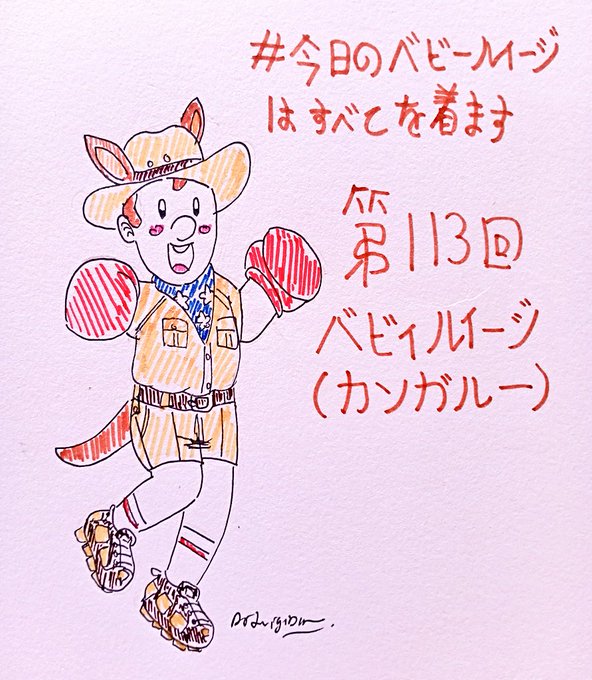 #今日のベビールイージ
はすべてを着ます
第113回
ベビィルイージ
(カンガルー)